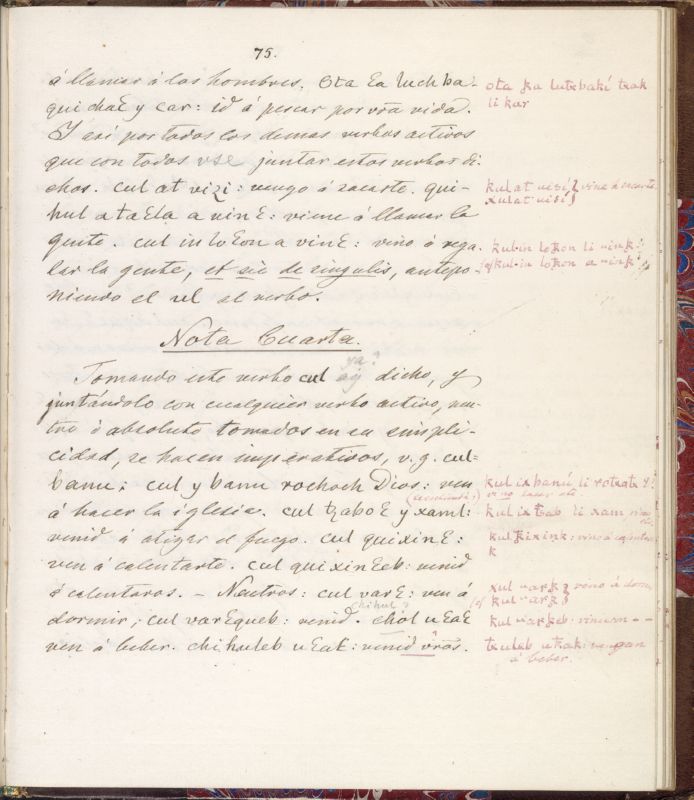 75.
á llamar á los hombres. Ota Ea luch ba-
qui chaE y car: id á pescar por vrã vida.
Y así por todos los demas verbos activos
que con todos vse juntar estos verbos di-
chos. cul at vizi: vengo á sacarte. qui-
hul ataEla a vinE: viene á llamar la
gente. cul in loEon a vinE: vino á rega-
lar la gente, et sic de singulis, antepo-
niendo el ul al verbo.
Nota Cuarta.
ya?
Tomando este verbo cul aÿ dicho, y
juntándolo con cualquier verbo activo, neu-
tro ó absoluto tomados en su simpli-
cidad, se hacen imperativos, v. g. cul-
banu; cul y banu rochoch Dios: ven
á hacer la iglesia. cul tzaboE y xaml:
venid á atizar el fuego. cul quixinE:
ven á calentarte. cul quixinEeb: venid
á calentaros. – Neutros: cul varE: ven á
chihul?
dormir; cul varEqueb: venid. chol uEaE
ven á beber. chihuleb uEaE: venid vrõs.
ota ka lutxbakí txak
li kar
kul at uisí, vine á sacarte
xulat uisí
kul-in lokon li uink:
kul-in lokon a uink
kul ixbanú li rotxotx
kul ixtxab li xam
kulkixink: vino á calentar
k
xul uark vino á dormir
kul uark
kul uarkeb: vinieron - -
txuleb ukak: vengan
á beber.